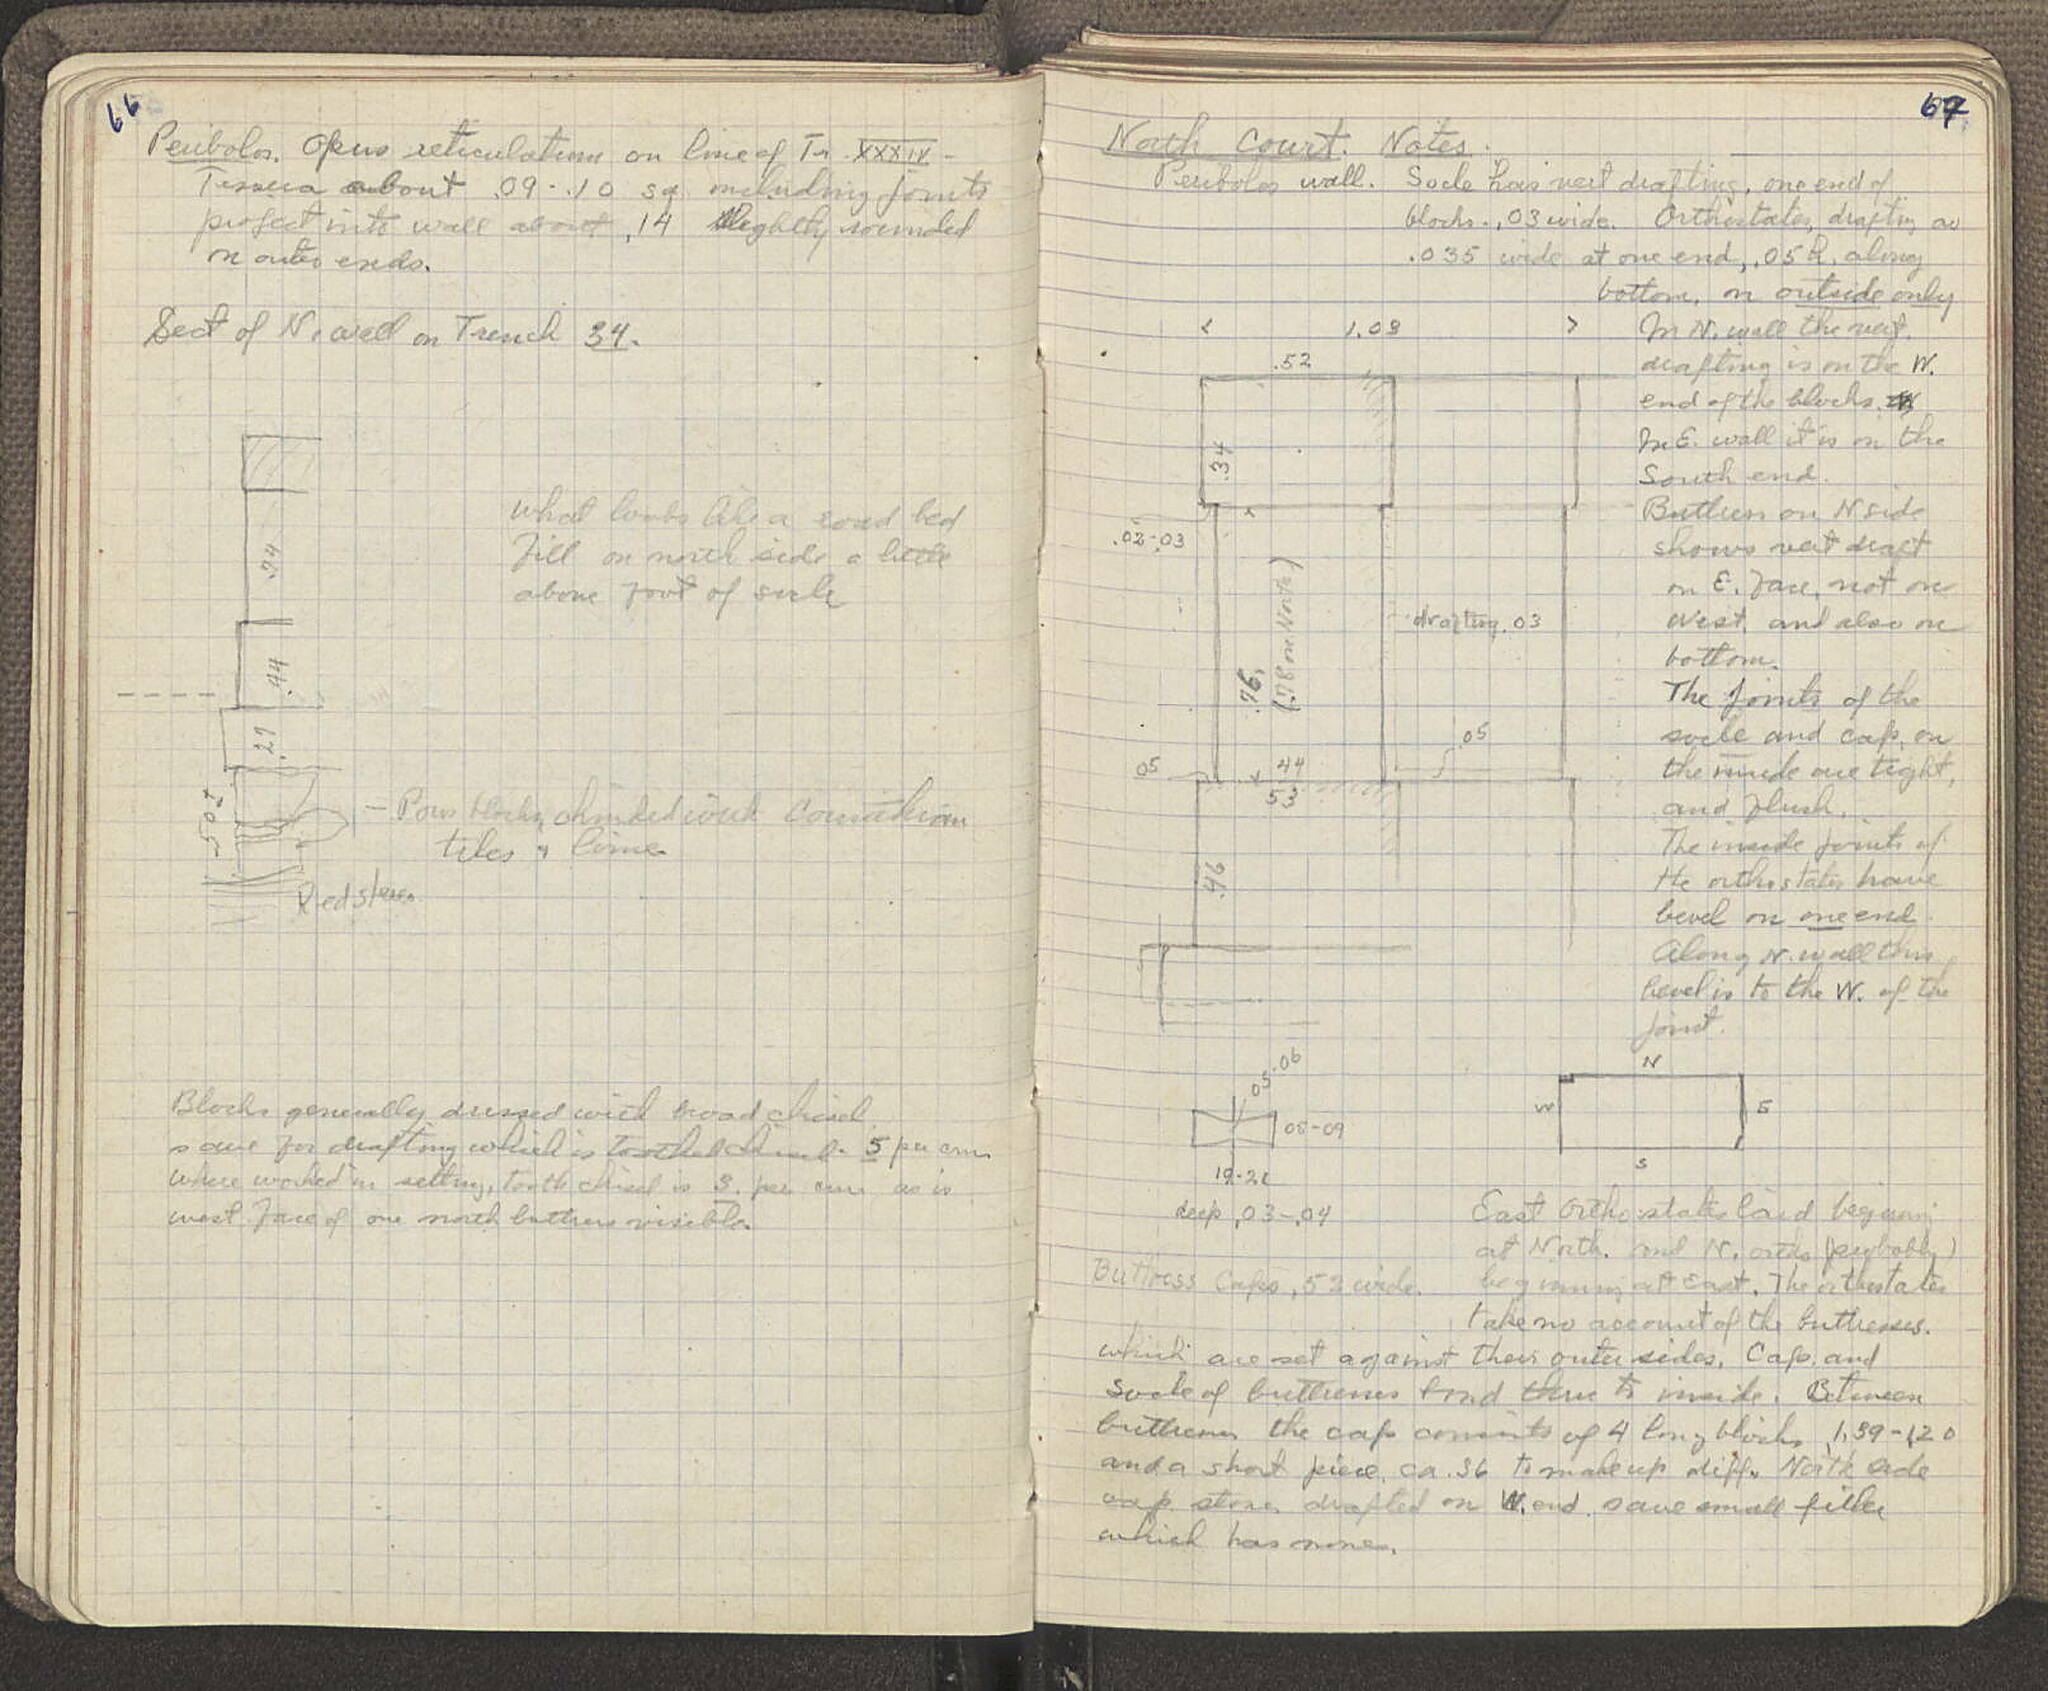 66
Peribolos. Opus reticulatum on line of Tr XXXIV -
Tessera about .09-.10 sq. including joints
project into wall about .14 slightly rounded
on outer ends.
Sect of N. wall on Trench 34.
.74
What looks like a road bed
fill on north side a little
above foot of socle
.44
.27
.50±
- Poros blocks, chinked with Corinthian
tiles & lime
Red stereo
Blocks generally dressed with broad chisel
save for drafting which is toothed chisel. 5 per cm
where worked in setting, tooth chisel is 3. per cm as is
west face of one north buttress visible.
67
North Court. Notes.
Peribolos wall. Socle has vert drafting, one end of
blocks. .03 wide. Orthostates, drafting as
.035 wide at one end, .05 h. along
bottom, on outside only
< 1.08 >
.52
.34
.02-.03
.76
(.78 on North)
drafting .03
.05
05
44
53
.46
In N. wall the vert.
drafting is on the W.
end of the blocks.
In E. wall it is on the
South end.
Buttress on N side
shows vert draft
on E. face, not on
West, and also on
bottom.
The joints of the
socle and cap, on
the inside are tight,
and flush.
The inside joints of
the orthostates have
bevel on one end
Along N. wall this
bevel is to the W. of the
joint.
05-06
08-09
19-21
deep .03-.04
N
W
E
S
East orthostates laid beginning
at North. and N. orths (probably)
beginning at East. The orthostates
take no account of the buttresses.
Buttress Caps .52 wide.
which are set against their outer sides. Cap and
Socle of buttresses bond thru to inside. Between
buttresses the cap consists of 4 long blocks 1.39-1.20
and a short piece ca .36 to make up diff. North side
cap stones drafted on W. end save small filler
which has none.